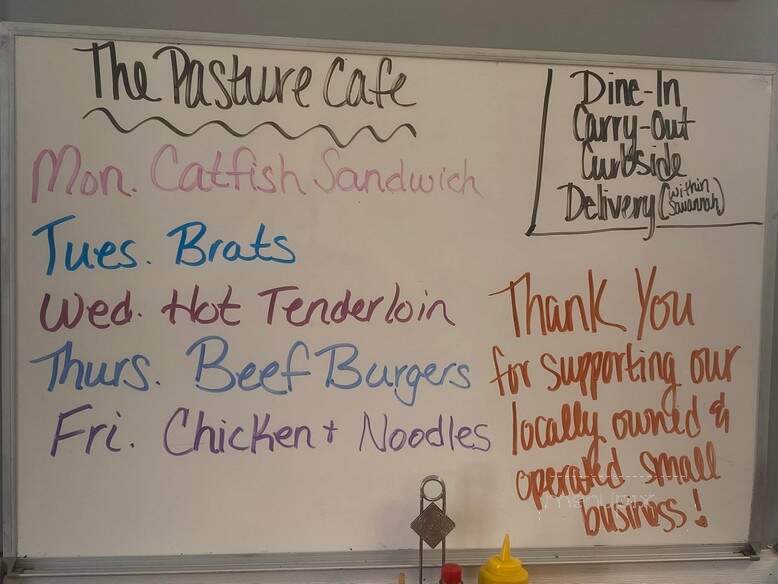 The Pasture Cafe
Mon. Catfish Sandwich
Tues. Brats
Wed. Hot Tenderloin
Thurs. Beef Burgers
Fri. Chicken + Noodles
Dine-In
Carry-Out
Curbside
Delivery (within Savannah)
Thank You
for supporting our
locally owned &
operated small
business!